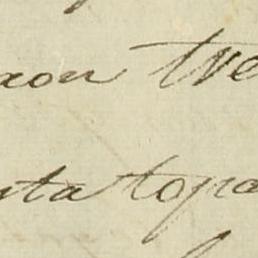 xon tre
sta topa